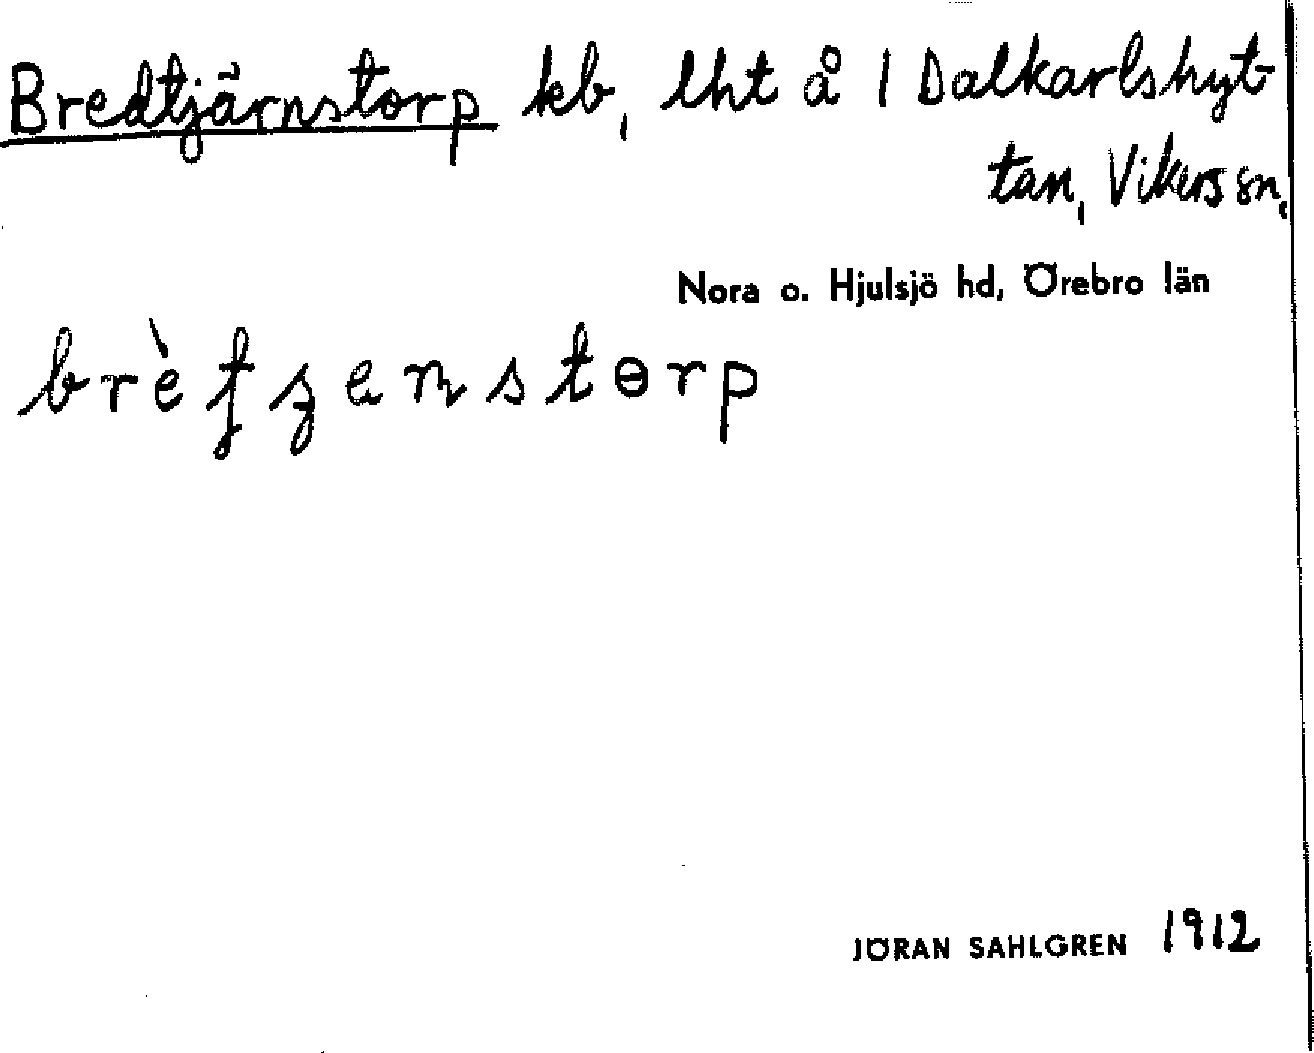 Bredtjärnstorp kb, lht å 1 Dalkarlshyt-
tan, Vikers sn,
Nora o. Hjulsjö hd, Örebro län
JÖRAN SAHLGREN 1912